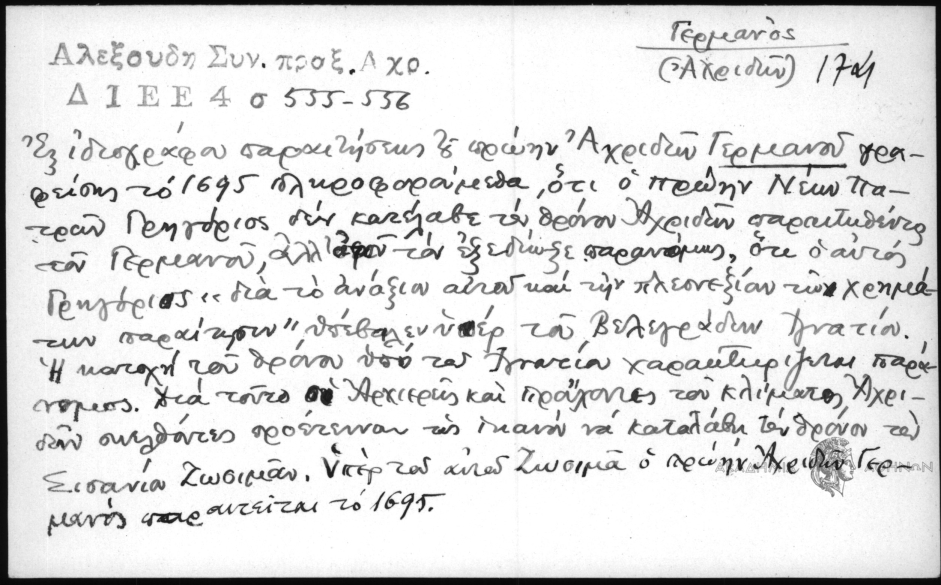 Γερμανὸς
Αλεξουδη Συν. προξ. Αχρ.
(Ἀχριδῶν) 174
Δ Ι Ε Ε 4 σ 555-556
Ἐξ ἰδιογράφου παραιτήσεως τοῦ πρώην Ἀχριδῶν Γερμανοῦ γρα-
φείσης τὸ 1695 πληροφορούμεθα, ὅτι ὁ πρώην Νέων Πα-
τρῶν Γρηγόριος δὲν κατέλαβε τὸν θρόνον Ἀχριδῶν παραιτηθέντος
τοῦ Γερμανοῦ, ἀλλ' ἀφοῦ τὸν ἐξεδίωξε παρανόμως, ὅτι ὁ αὐτός
Γρηγόριος "διὰ τὸ ἀνάξιον αὐτοῦ καὶ τὴν πλεονεξίαν τῶν χρημά-
των παραίτησιν" ὑπέβαλεν ὑπέρ τοῦ Βελεγράδων Ἰγνατίου.
Ἡ κατοχὴ τοῦ θρόνου ὑπό τοῦ Ἰγνατίου χαρακτηρίζεται παρά-
νομος. Διά τοῦτο οἱ Ἀρχιερεῖς καὶ προὔχοντες τοῦ κλίματος Ἀχρι-
δῶν συνελθόντες προέτειναν ὡς ἱκανόν νά καταλάβῃ τὸν θρόνον τὸν
Σισανίου Ζωσιμᾶν. Ὑπέρ τοῦ αὐτοῦ Ζωσιμᾶ ὁ πρώην Ἀχριδῶν Γερ-
μανός παραιτεῖται τὸ 1695.
ΑΚΑΔΗΜΙΑ ΑΘΗΝΩΝ